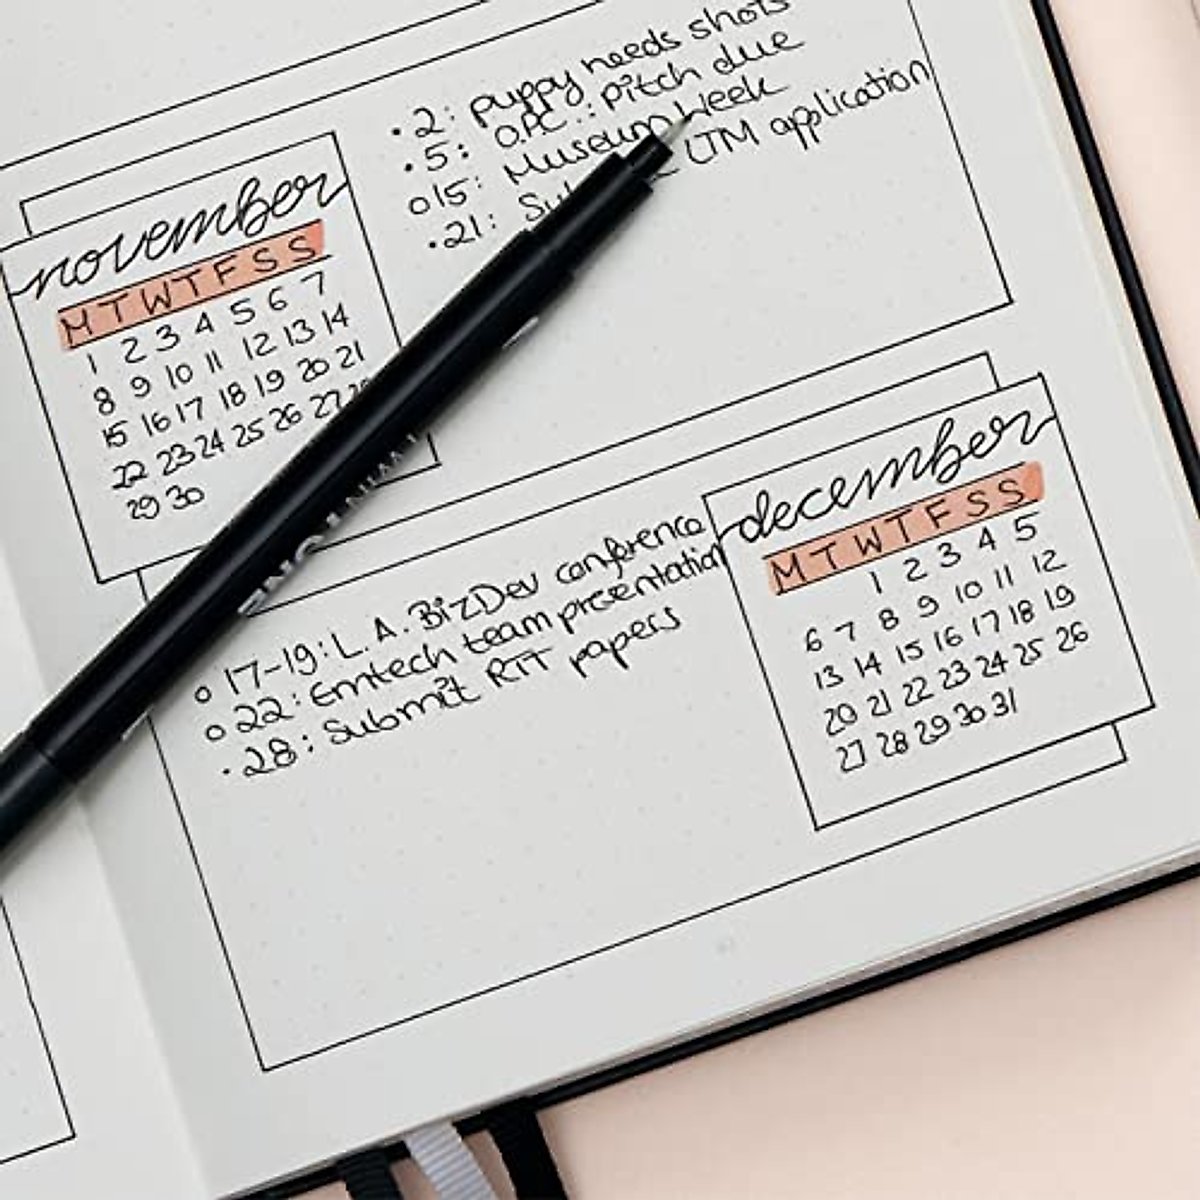 november
M T W T F S S
1 2 3 4 5 6 7
8 9 10 11 12 13 14
15 16 17 18 19 20 21
22 23 24 25 26 27
29 30
• 2: puppy needs shots
• 5: pitch due
○ 15: Museum Week
• 21: application
december
M T W T F S S
1 2 3 4 5
6 7 8 9 10 11 12
13 14 15 16 17 18 19
20 21 22 23 24 25 26
27 28 29 30 31
○ 17-19: L.A. BizDev conference
○ 22: Emtech team presentation
• 28: Submit RTT papers